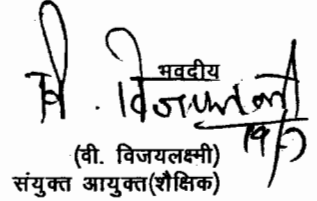 भवदीय
वि. विजयलक्ष्मी
19/7
(वी. विजयलक्ष्मी)
संयुक्त आयुक्त(शैक्षिक)